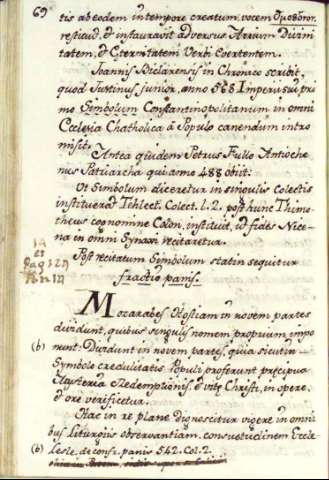 69
tis ab eodem in tempore creatum, vocem
restituit, et instauravit adversus Arrium Divini
tatem, et Eternitatem Verbi evertentem.
Joannis Biclarensis in Chronico scribit,
quod Justinus junior, anno 568 Imperii sui pri
mo Symbolum Constantinopolitanum in omni
Ecclesia Chatholica à Populo canendum intro
misit.
Antea quidem Petrus Fullo Antioche
nus Patriarcha qui anno 488 obiit:
Ut Simbolum diceretur in singulis Colectis
instituerat Thlect. Colect. l. 2. post hunc Thimo
theus cognomine Colon, instituit, ut fides Nice
na in omni Synaxi recitaretur.
Post recitatum Symbolum statim sequitur
fractio panis.
Mozarabes Hostiam in novem partes
dividunt, quibus singulis nomen proprium impo
(b) nunt: Dividunt in novem partes, quia sicut in
Symbolo credulitatis Populi proferunt precipua
Mysteria Redemptionis, et vitę Christi, in opere,
et ore verificetur.
Hac in re plane dignoscitur vigere in omni
bus Liturgiis observantiam, consuetudinem Eccle
(b) Lesle, de confr. panis 542. Col. 2.